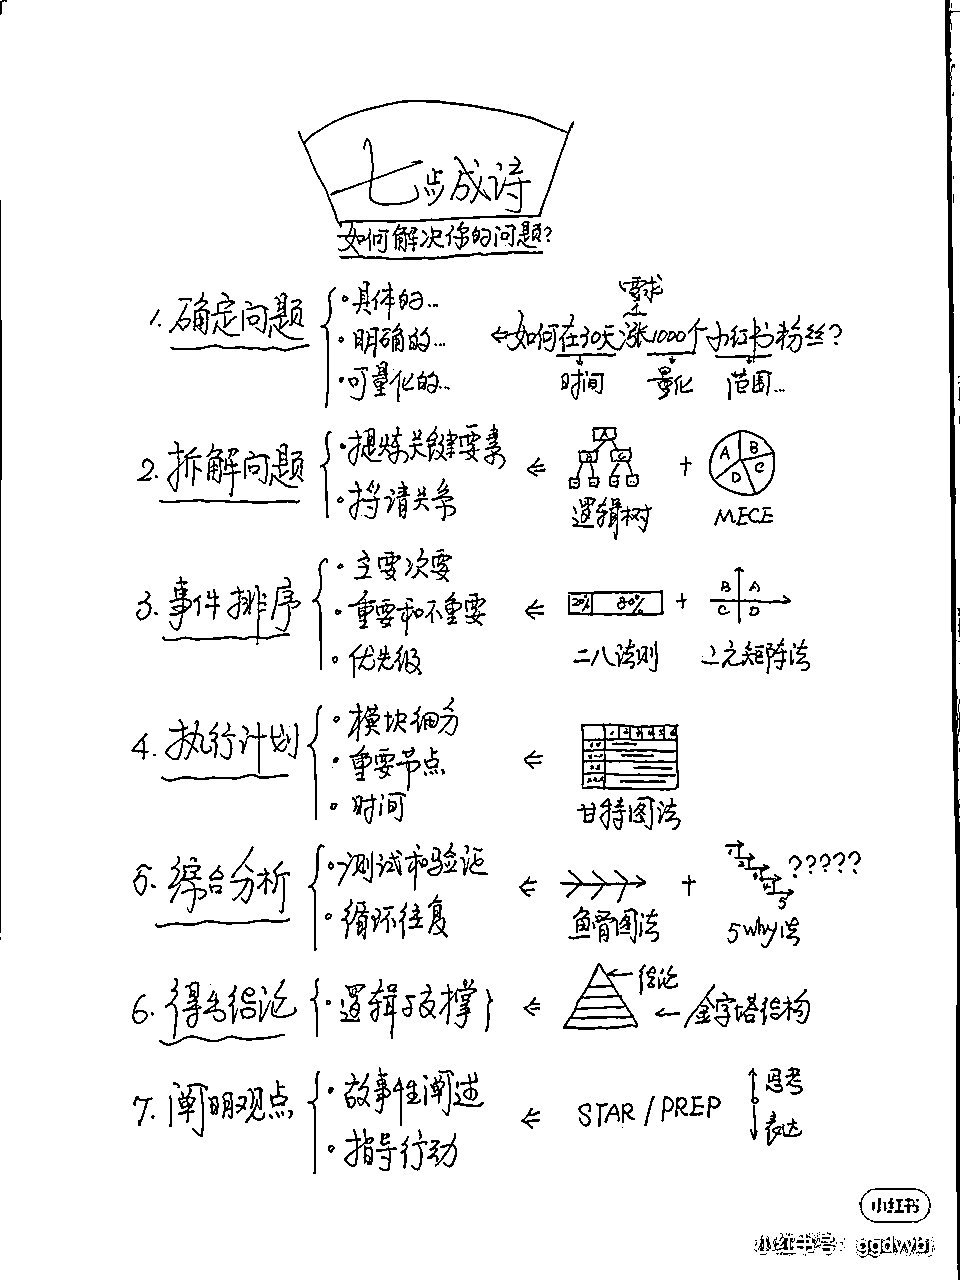 七步成诗
如何解决你的问题?
1. 确定问题
·具体的...
·明确的...
·可量化的...
需求
如何在30天涨1000个小红书粉丝?
时间 量化 范围...
2. 拆解问题
·提炼关键要素
·捋清关系
A
B C
逻辑树
+
A B C D
MECE
3. 事件排序
·主要次要
·重要和不重要
·优先级
20% 80%
二八法则
+
B A
C D
二元矩阵法
4. 执行计划
·模块细分
·重要节点
·时间
甘特图法
5. 综合分析
·测试和验证
·循环往复
鱼骨图法
+
?????
5
5why法
6. 得出结论
·逻辑与支撑
结论
金字塔结构
7. 阐明观点
·故事性阐述
·指导行动
STAR/PREP
思考
表达
小红书
小红书号: ggdwbj